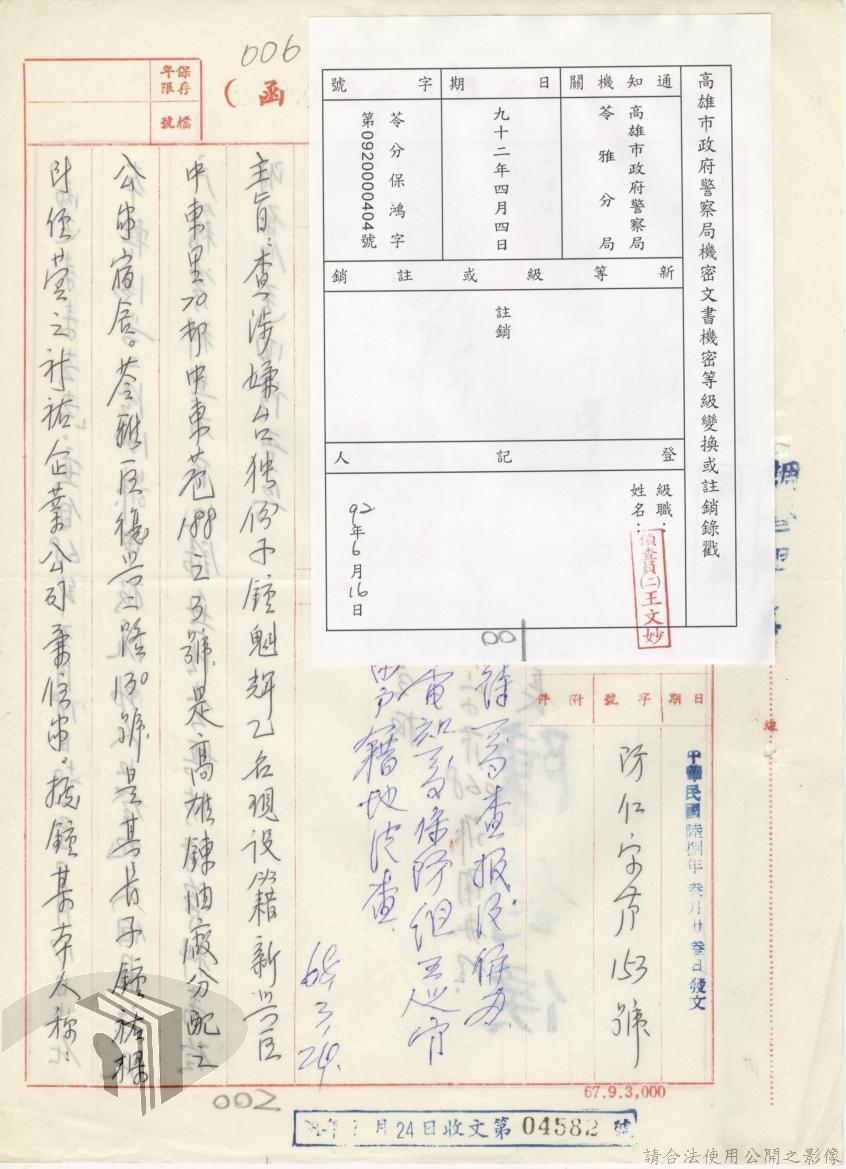 006
保存
年限
檔號
(函
高雄市政府警察局機密文書機密等級變換或註銷錄戳
通知機關
日期
字號
高雄市政府警察局
苓雅分局
九十二年四月四日
苓分保鴻字
第0920000404號
新等級或註銷
註銷
登記人
級職：
姓名：
偵查員(二)王文妙
92年6月16日
001
日期
字號
附件
中華民國陸捌年叁月廿叁日發文
防仁字第153號
線
主旨：查涉嫌台獨份子鍾魁輝乙名現設籍新興區
中東里70鄰中東巷188之3號是高雄鍊油廠分配之
公寓宿舍。苓雅區復興二路130號是其長子鍾
附經營之新祐企業公司兼住家。據鍾某本人稱：
查報後併辦
電知
戶籍地
查
68.3.24.
002
67.9.3,000
月24日收文第04582號
請合法使用公開之影像